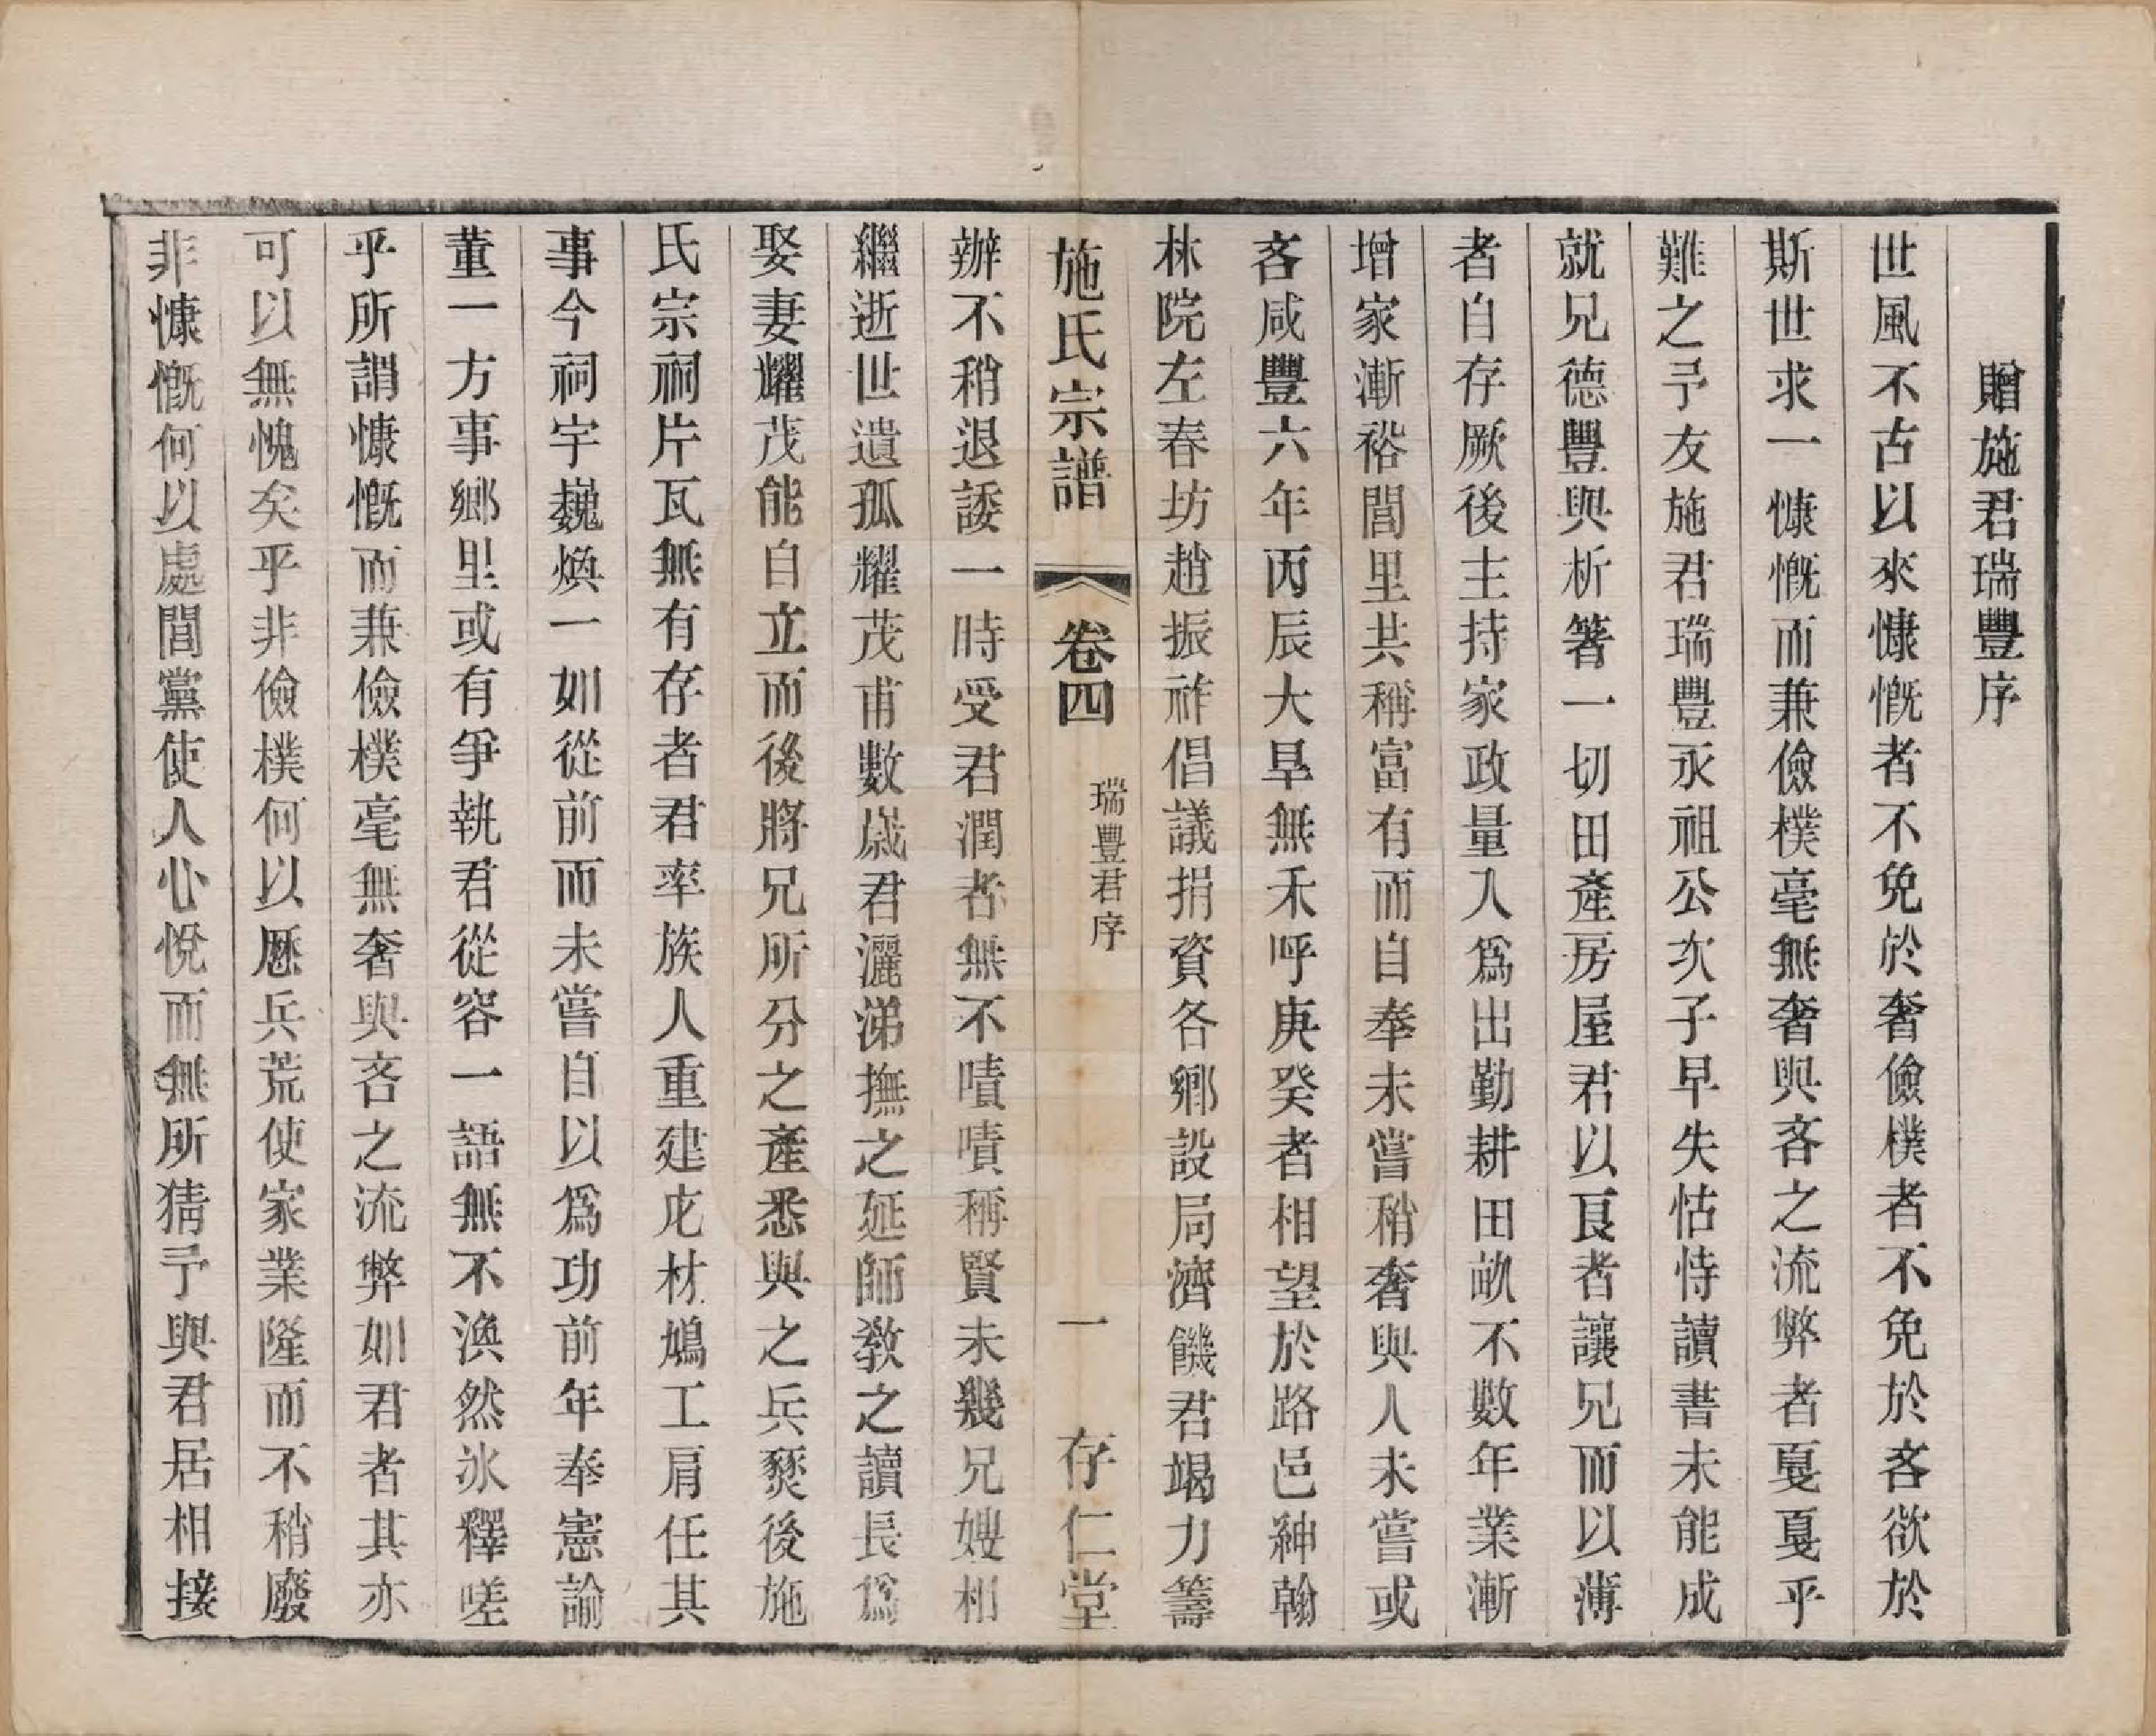 贈施君瑞豐序
世風不古以來慷慨者不免於奢儉樸者不免於吝欲於
斯世求一慷慨而兼儉樸毫無奢與吝之流弊者戛戛乎
難之予友施君瑞豐永祖公次子早失怙恃讀書未能成
就兄德豐與析箸一切田產房屋君以良者讓兄而以薄
者自存厥後主持家政量入爲出勤耕田畝不數年業漸
增家漸裕閭里共稱富有而自奉未嘗稍奢與人未嘗或
吝咸豐六年丙辰大旱無禾呼庚癸者相望於路邑紳翰
林院左春坊趙振祚倡議捐資各鄉設局濟饑君竭力籌
施氏宗譜
卷四
瑞豐君序
一
存仁堂
辦不稍退諉一時受君潤者無不嘖嘖稱賢未幾兄嫂相
繼逝世遺孤耀茂甫數歲君灑涕撫之延師教之讀長爲
娶妻耀茂能自立而後將兄所分之產悉與之兵燹後施
氏宗祠片瓦無有存者君率族人重建庀材鳩工肩任其
事今祠宇巍煥一如從前而未嘗自以爲功前年奉憲諭
董一方事鄉里或有爭執君從容一語無不渙然冰釋嗟
乎所謂慷慨而兼儉樸毫無奢與吝之流弊如君者其亦
可以無愧矣乎非儉樸何以歷兵荒使家業隆而不稍廢
非慷慨何以處閭黨使人心悅而無所猜予與君居相接